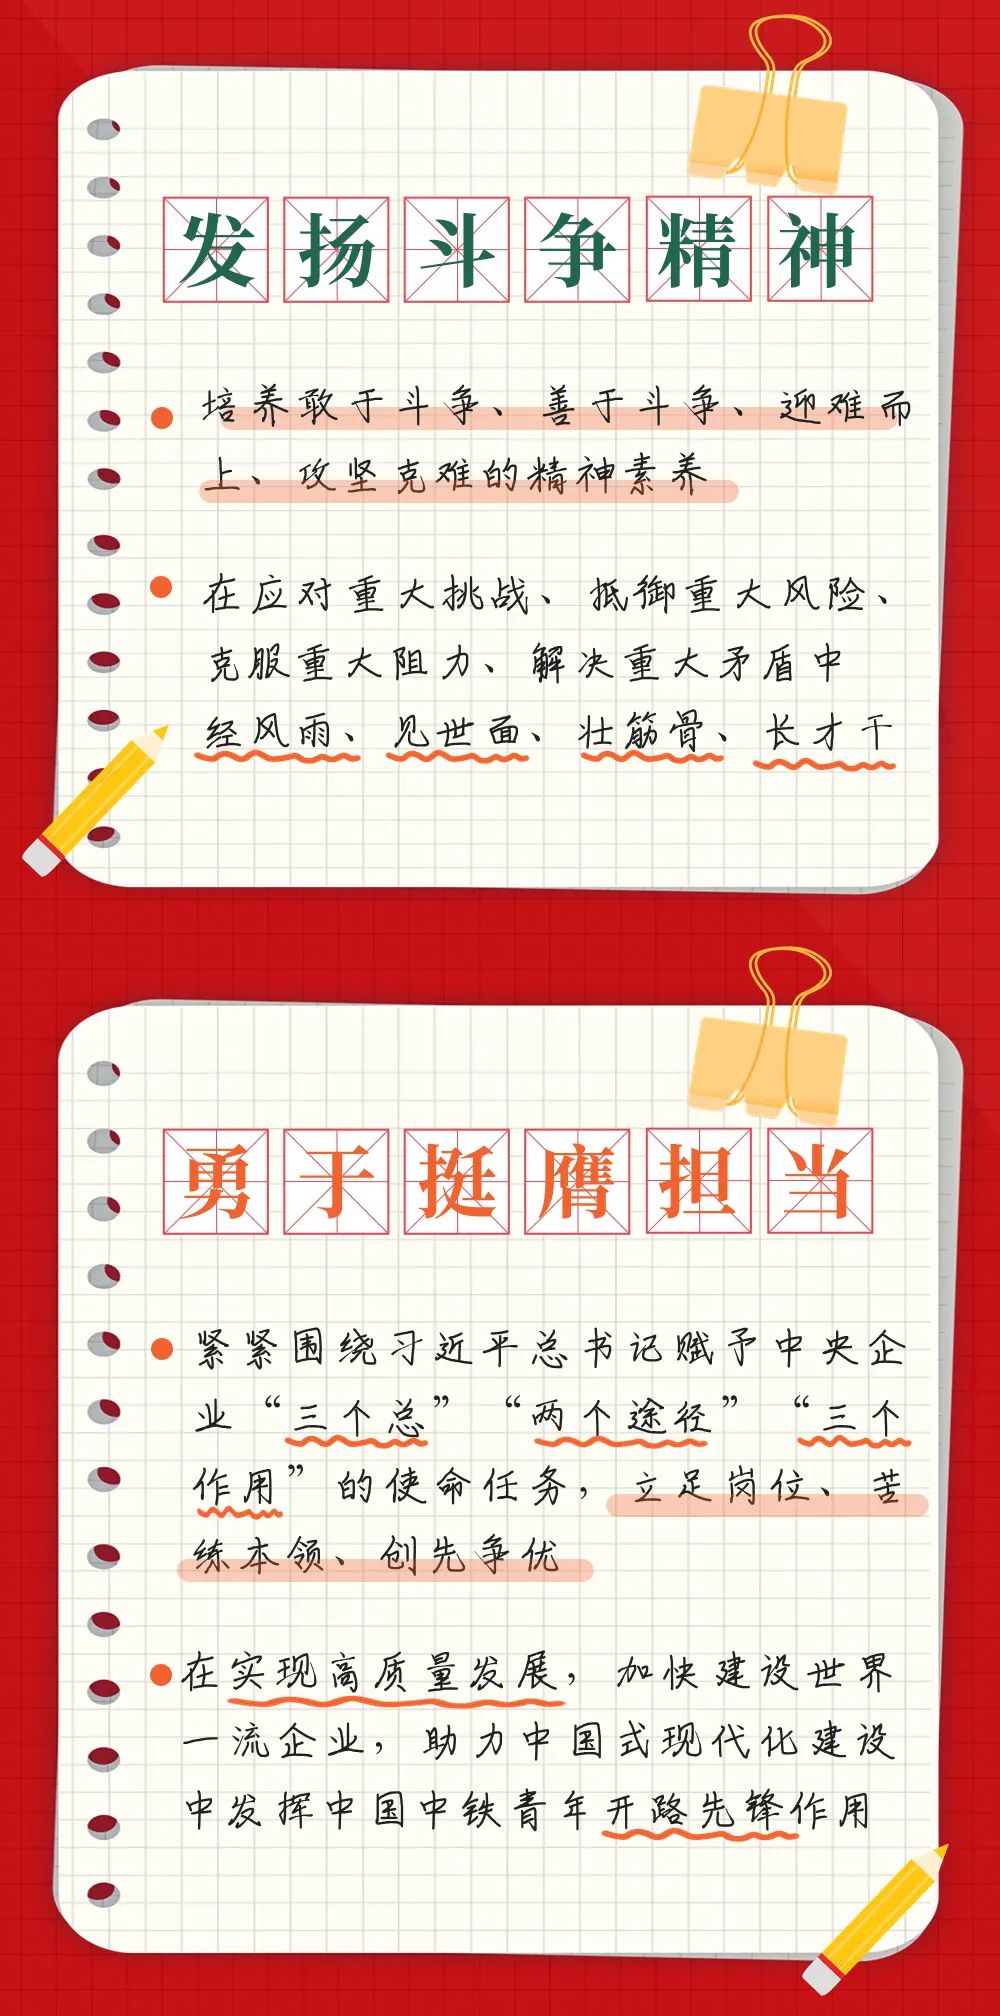 发扬斗争精神
培养敢于斗争、善于斗争、迎难而
上、攻坚克难的精神素养
在应对重大挑战、抵御重大风险、
克服重大阻力、解决重大矛盾中
经风雨、见世面、壮筋骨、长才干
勇于挺膺担当
紧紧围绕习近平总书记赋予中央企
业“三个总”“两个途径”“三个
作用”的使命任务，立足岗位、苦
练本领、创先争优
在实现高质量发展，加快建设世界
一流企业，助力中国式现代化建设
中发挥中国中铁青年开路先锋作用